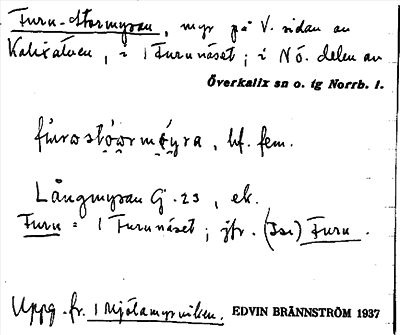 Furu-Stormyran, myr på V. sidan av
Kalixälven, i 1 Furunäset; i NÖ. delen av
Överkalix sn o. tg Norrb. l.
bf. fem.
Långmyran G. 23, ek.
Furu = 1 Furunäset; jfr. (Isi) Furu.
Uppg. fr. 1 Mjölamyrviken. EDVIN BRÄNNSTRÖM 1937